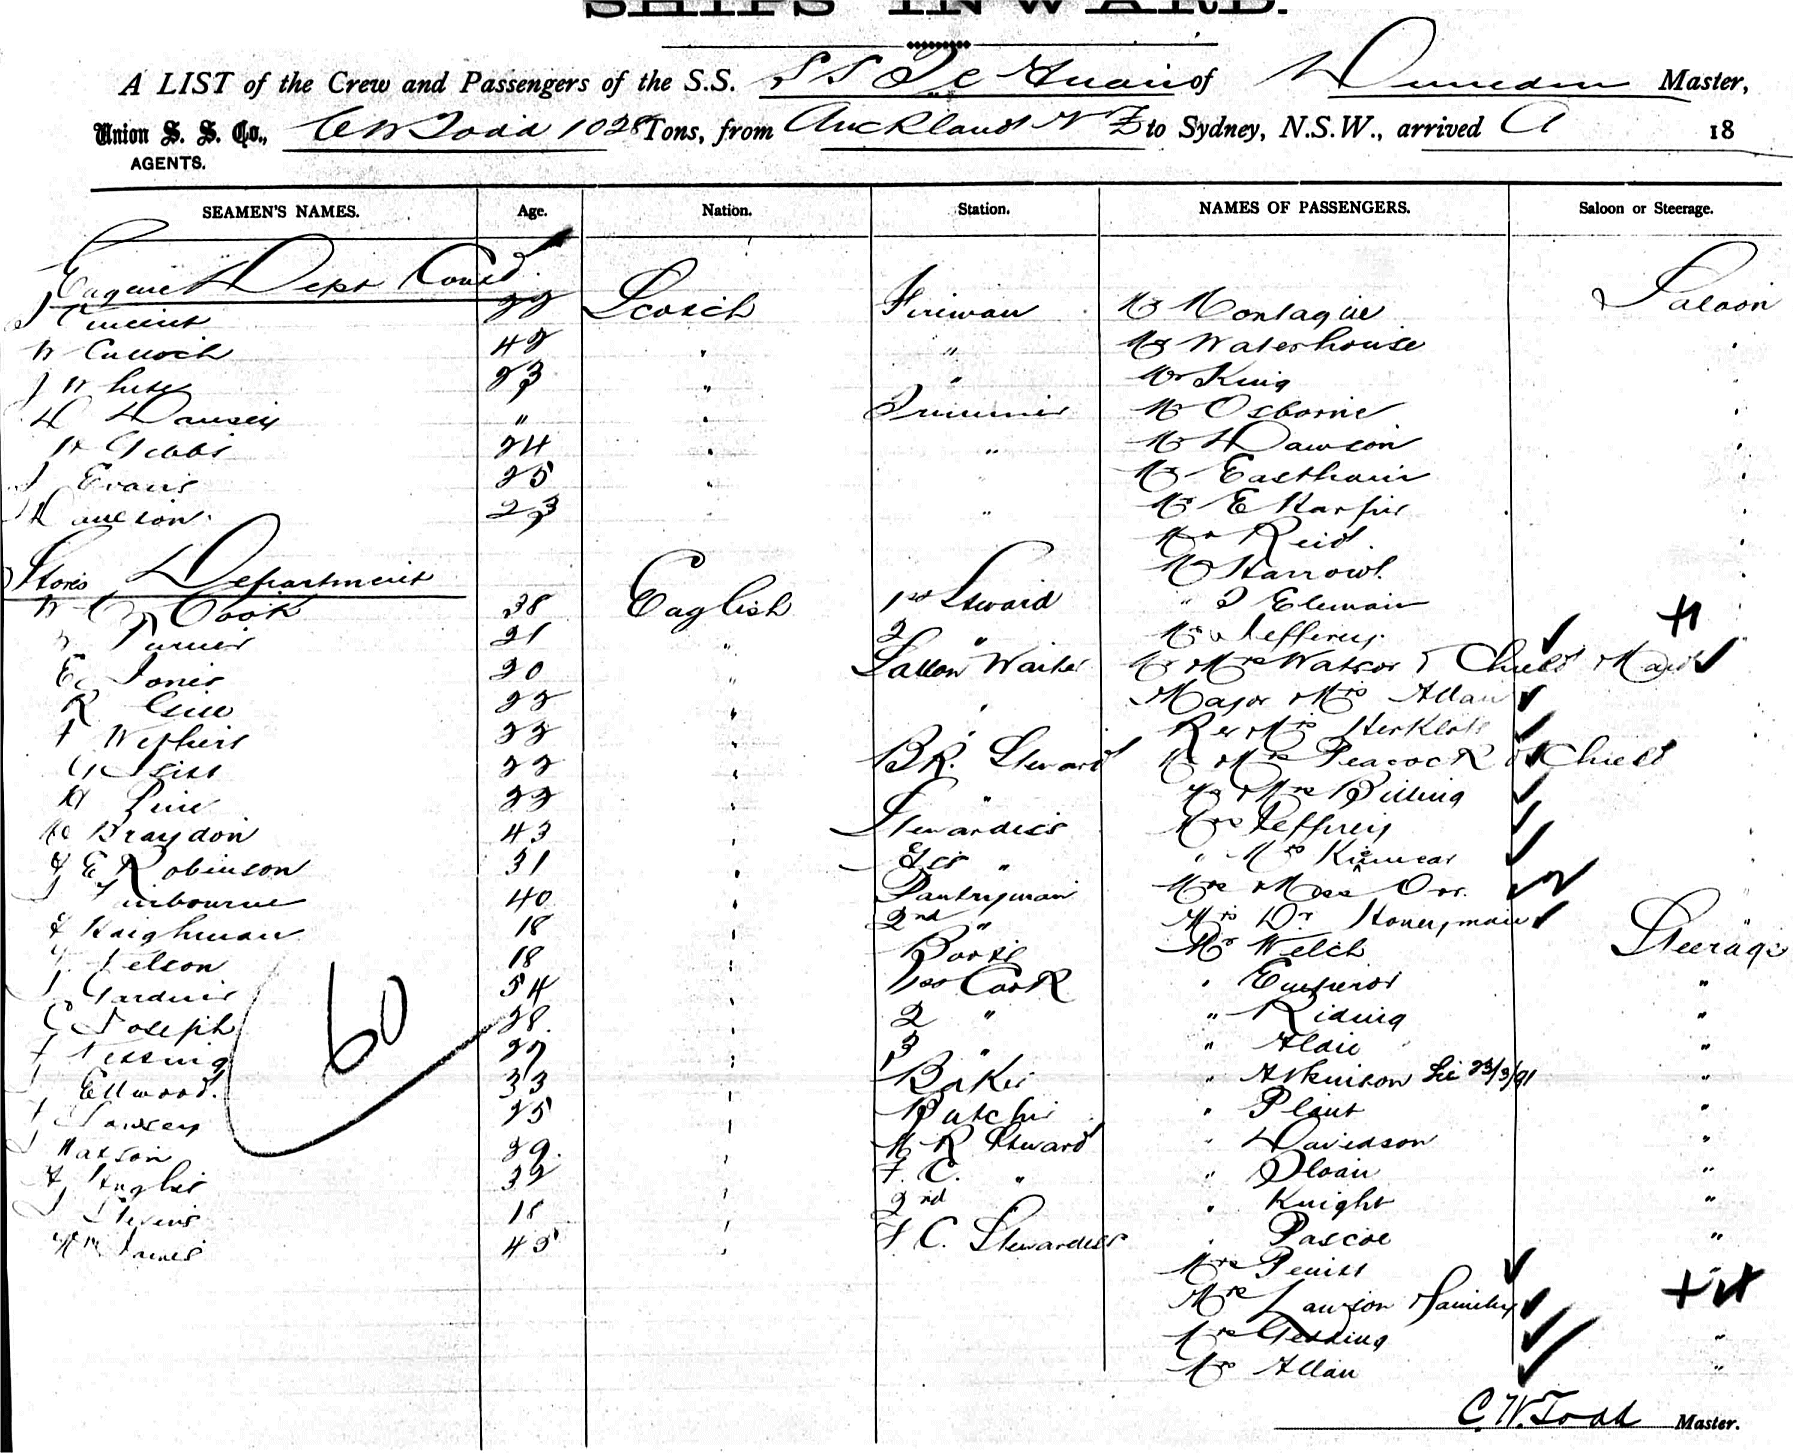 SHIPS INWARD.
A LIST of the Crew and Passengers of the S.S. S S Te Anau of Dunedin Master,
Union S. S. Co., C W Todd 1028 Tons, from Auckland N Z to Sydney, N.S.W., arrived 18
AGENTS.
SEAMEN'S NAMES. Age. Nation. Station. NAMES OF PASSENGERS. Saloon or Steerage.
Engine Dept Contd.
J Vincent 22 Scotch Fireman Mr Montague Saloon
W Culloch 42 " " Mr Waterhouse "
J White 23 " " Mr King
H Dansey " " Trimmer Mr Osborne "
W Gibbs 24 " " Mr Dawson "
J Evans 25 " Mr Eastham "
Paulson 23 " " Mr E Harper "
Mr Reid "
Mr Harrowl "
Stores Department
W Cook 38 English 1st Steward " Elewain "
Turner 21 " 2 " Mr Jeffrey
E Jones 20 " Saloon Waiter Mr Mrs Watson & Child Maid
R Gill 22 " " Major Mrs Allan
F Withers 22 " " Rev Mrs Herklots
22 " B.R. Steward Mr Mrs Peacock & Child
H Pine 22 " " Mr Mrs Billing
Mc Braydon 43 " Stewardess Mrs Jeffrey
E Robinson 31 " " " Mrs Kinnear
40 " Pantryman Mrs Miss Orr.
Haighman 18 " 2nd " Mrs Dr Honeyman "
Nelson 18 " Boots Mr Welch Steerage
J Gardner 54 " 1st Cook " Emperor "
C Joseph 28. " 2 " " Riding "
60
Vessing 27 " 3 " " Aldie "
J Ellwood. 33 " Baker " Atkinson 23/3/91 "
25 " Butcher " Plant "
J Watson 29. " M R Steward " Davidson "
32 " F. C. " " Sloan "
J Stevens 18 " 2nd " Knight "
Mrs James 45 " F C. Stewardess " Pascoe "
Mrs
Mrs Lawson & family
Mrs "
Mrs Allan "
C. W. Todd Master.